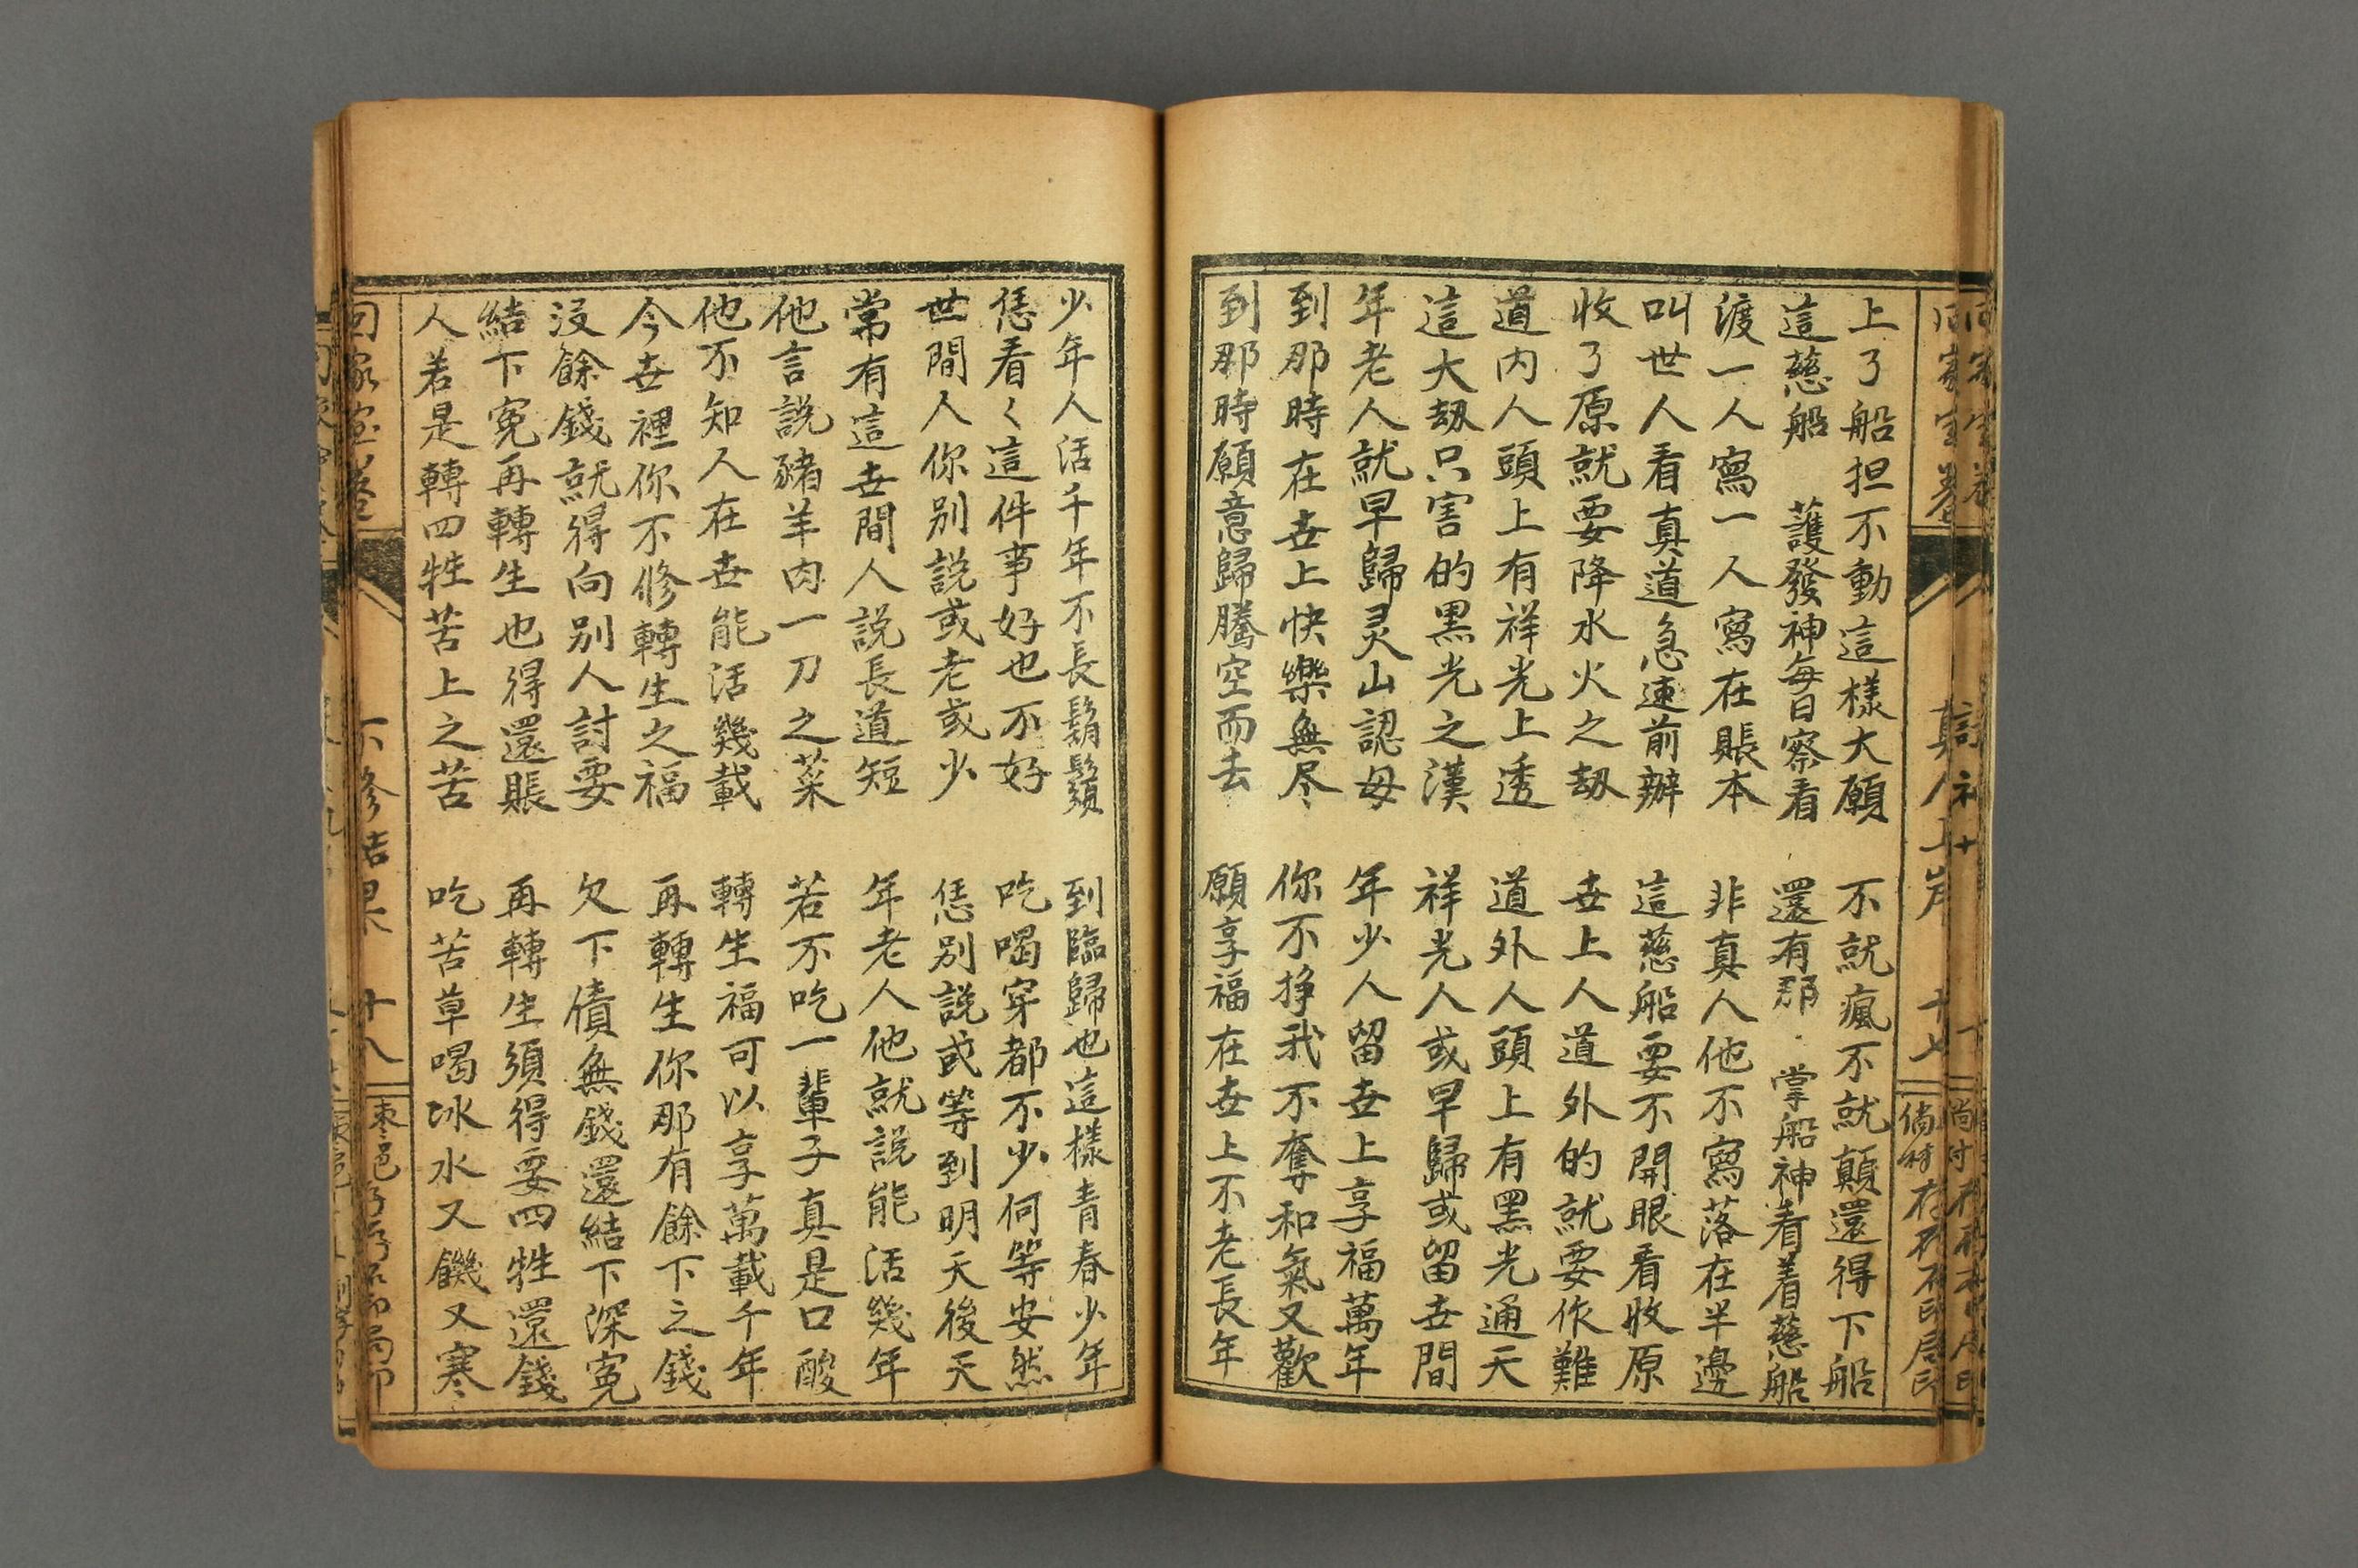 上了船担不動這樣大願　不就瘋不就顛還得下船
這慈船　護發神每日察看　還有那　掌船神看着慈船
渡一人寫一人寫在賬本　非真人他不寫落在半邊
叫世人看真道急速前辦　這慈船要不開眼看收原
收了原就要降水火之刼　世上人道外的就要作難
道内人頭上有祥光上透　道外人頭上有黑光通天
這大刼只害的黑光之漢　祥光人或早歸或留世間
年老人就早歸灵山認母　年少人留世上享福萬年
到那時在世上快樂無尽　你不挣我不奪和氣又歡
到那時願意歸騰空而去　願享福在世上不老長年
少年人活千年不長鬍鬚　到臨歸也這樣青春少年
恁看〻這件事好也不好　吃喝穿都不少何等安然
世間人你别説或老或少　恁别説或等到明天後天
常有這世間人説長道短　年老人他就説能活幾年
他言説豬羊肉一刀之菜　若不吃一輩子真是口酸
他不知人在世能活幾載　轉生福可以享萬載千年
今世裡你不修轉生之福　再轉生你那有餘下之錢
没餘錢就得向别人討要　欠下債無錢還結下深寃
結下寃再轉生也得還賬　再轉生須得要四牲還錢
人若是轉四牲苦上之苦　吃苦草喝冰水又饑又寒
不修结果
十八